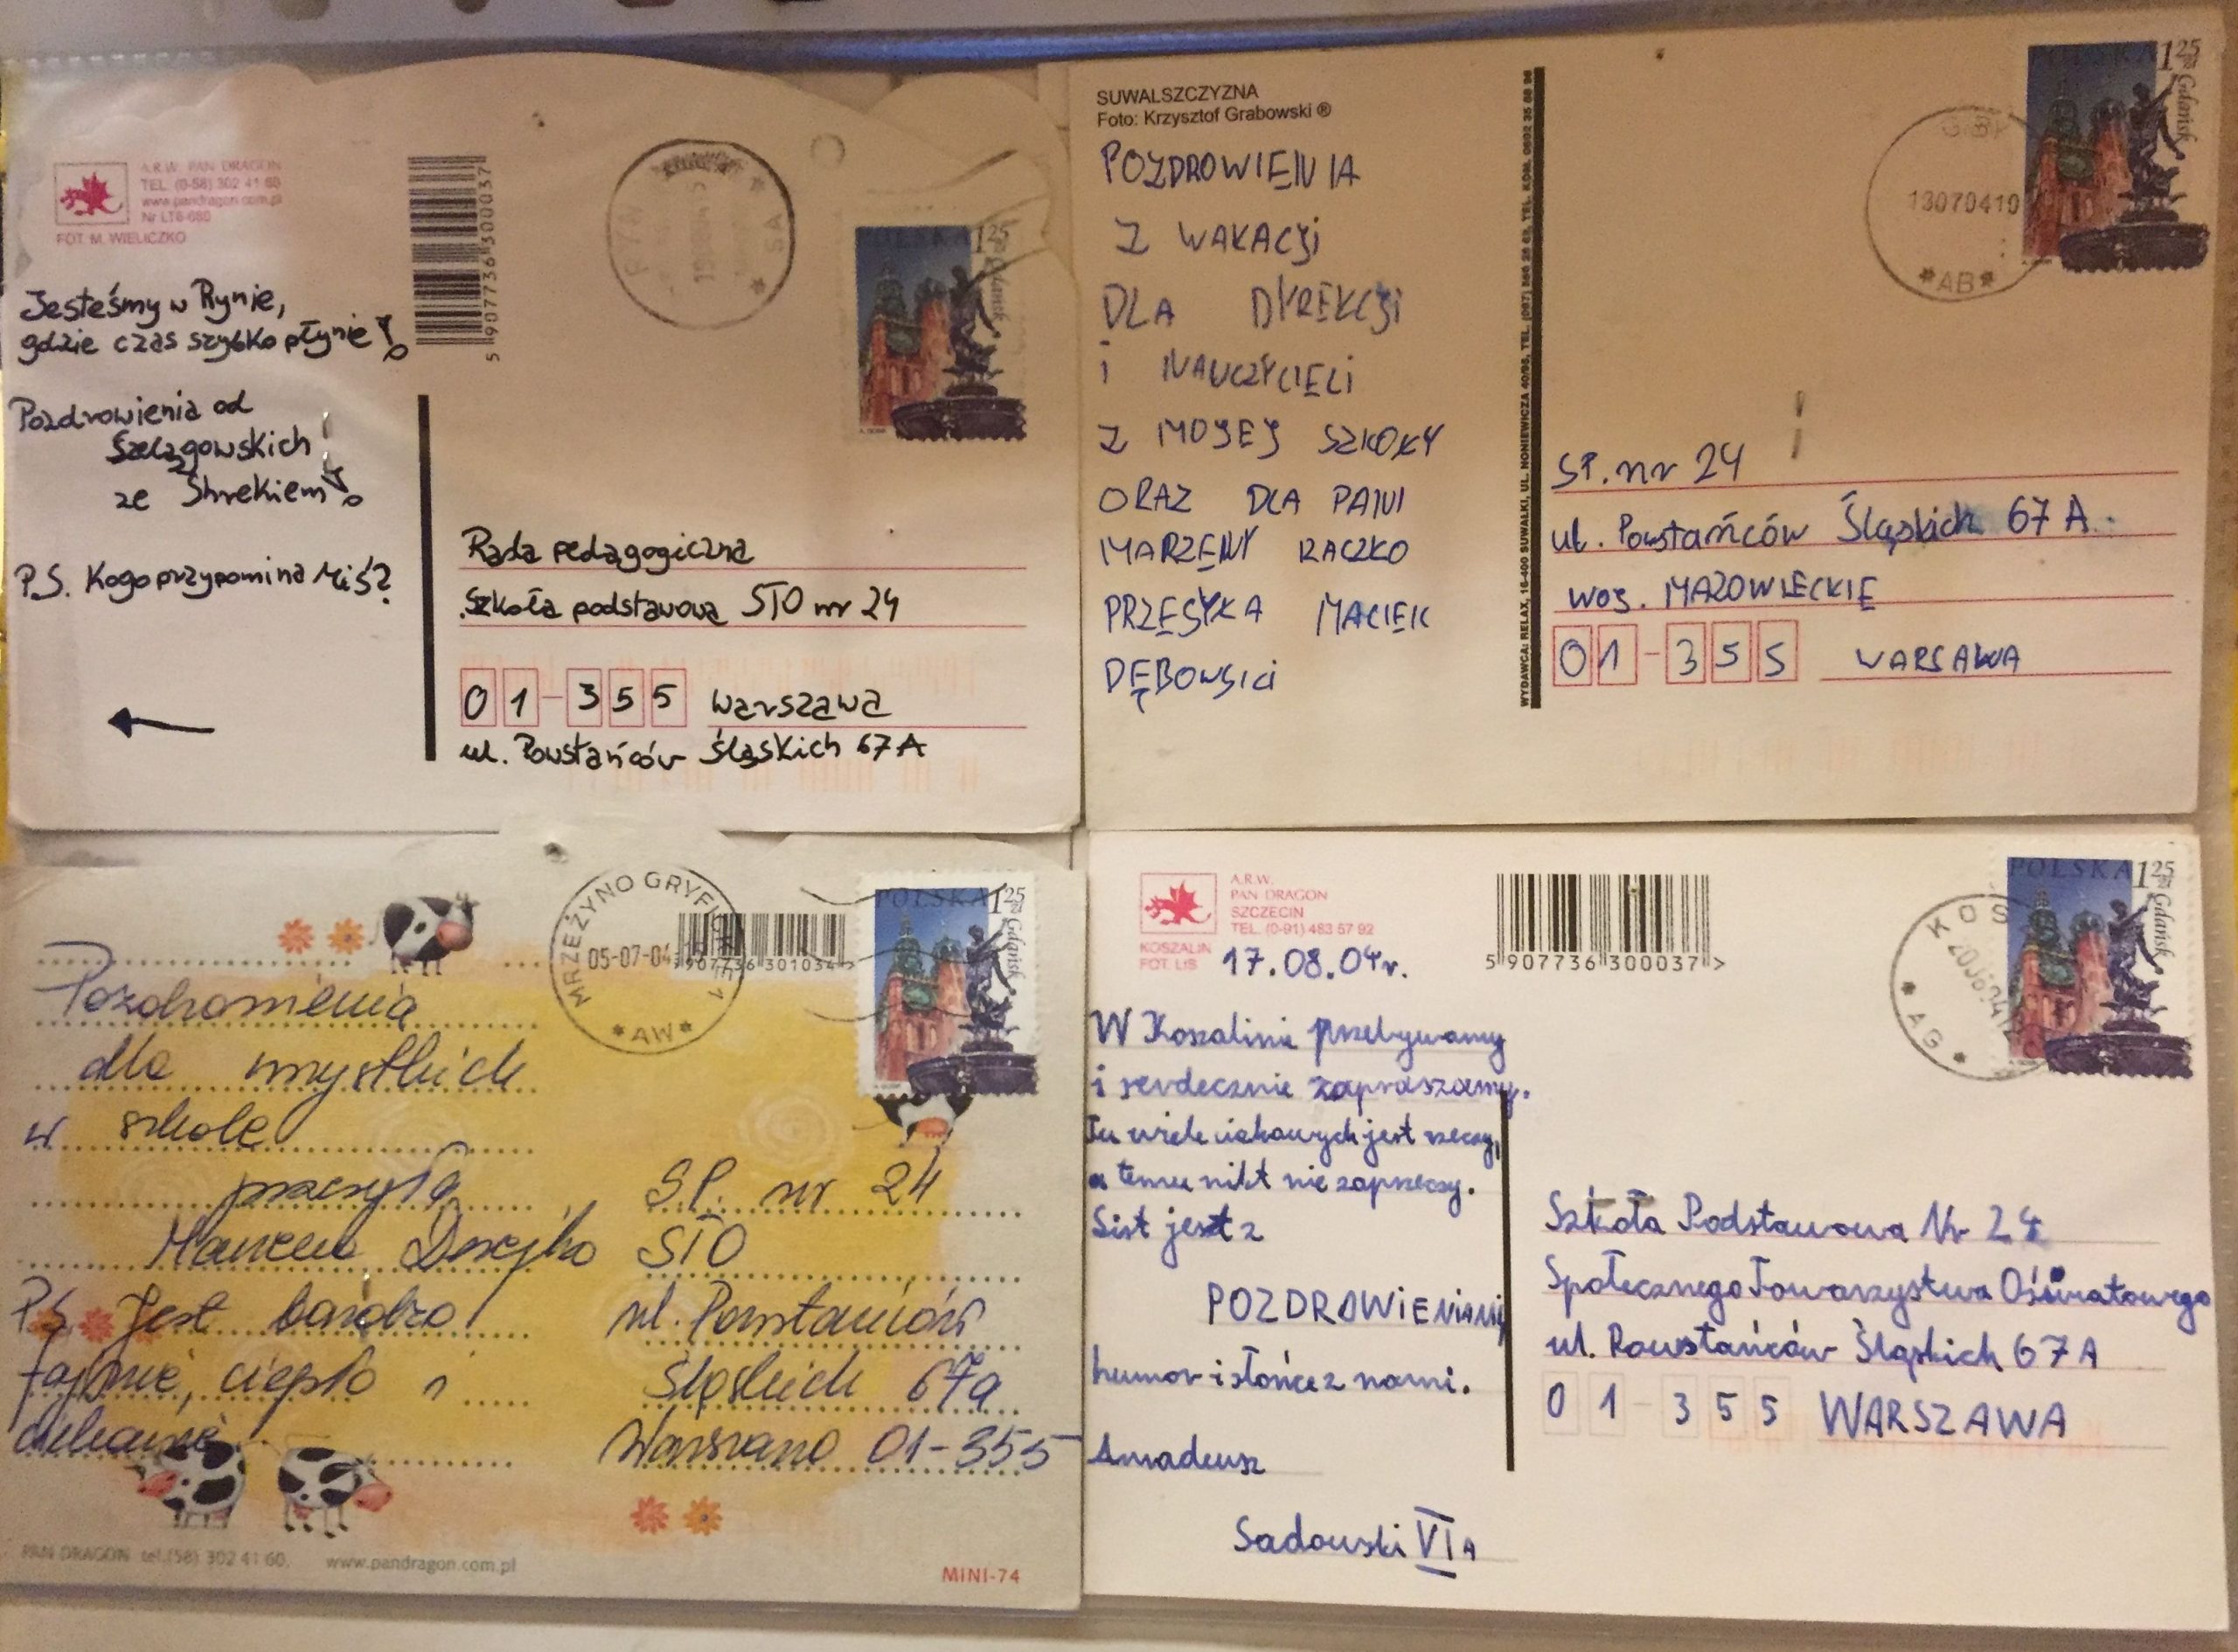 A.R.W. PAN DRAGON
TEL. (0-58) 302 41 60
www.pandragon.com.pl
Nr LT6-680
FOT. M. WIELICZKO
5 907736 300037
Jesteśmy w Rynie,
gdzie czas szybko płynie!
Pozdrowienia od
Szelągowskich
ze Shrekiem!
P.S. Kogo przypomina Miś?
POLSKA 1,25
Gdańsk
Rada pedagogiczna
Szkoła podstawowa STO nr 24
01-355 Warszawa
ul. Powstańców Śląskich 67A
SUWALSZCZYZNA
Foto: Krzysztof Grabowski ®
POZDROWIENIA
Z WAKACJi
DLA DYREKCJi
i NAUCZYCIELi
Z MOJEJ SZKOŁY
ORAZ DLA PANI
MARZENY RACZKO
PRZESYŁA MACIEK
DĘBOWSKi
POLSKA 1,25
Gdańsk
GIBY
13070410
*AB*
SP. nr 24
ul. Powstańców Śląskich 67A.
WOJ. MAZOWIECKIE
01-355 WARSAWA
MRZEŻYNO GRYFICKIE 1
05-07-04
*AW*
5 907736 301034 >
POLSKA 1,25
Gdańsk
Pozdrowienia
dla wszystkich
w szkole
przesyła
PS Jest bardzo
fajnie, ciepło i
ciekawie
S.P. nr 24
STO
ul. Powstańców
Śląskich 67a
Warszawa 01-355
PAN DRAGON tel.(58) 302 41 60, www.pandragon.com.pl
MINI-74
A.R.W.
PAN DRAGON
SZCZECIN
TEL. (0-91) 483 57 92
KOSZALIN
FOT. LIS
17.08.04r.
5 907736 300037 >
POLSKA 1,25
Gdańsk
W Koszalinie przebywamy
i serdecznie zapraszamy.
Tu wiele ciekawych jest rzeczy,
a temu nikt nie zaprzeczy.
List jest z
POZDROWIENIAMI,
humor i słońce z nami.
Amadeusz
Sadowski VI A
Szkoła Podstawowa Nr 24
Społecznego Towarzystwa Oświatowego
ul. Powstańców Śląskich 67A
01-355 WARSZAWA